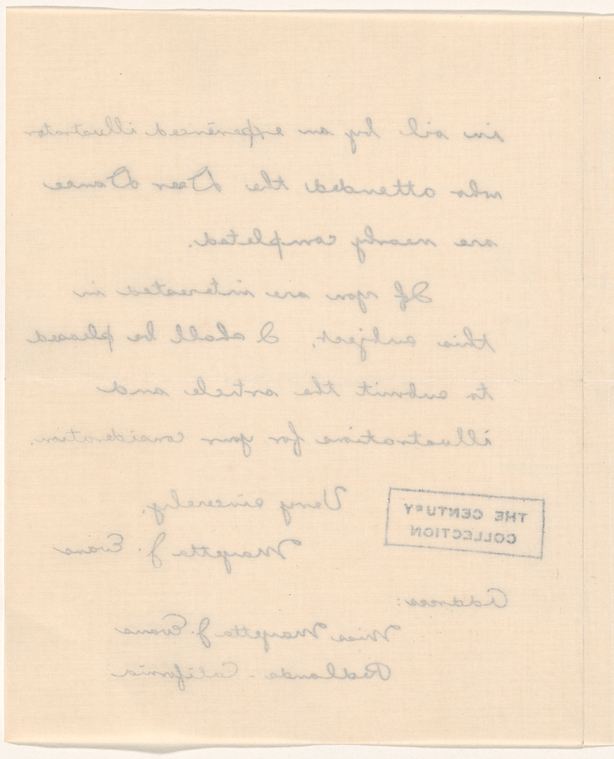 in oil by an experienced illustrator
who attended the Deer Dance
are nearly completed.
If you are interested in
this subject, I shall be pleased
to submit the article and
illustrations for your consideration.
Very sincerely,
Mayetta J. Evans
THE CENTURY
COLLECTION
Address:
Miss Mayetta J. Evans
Redlands - California